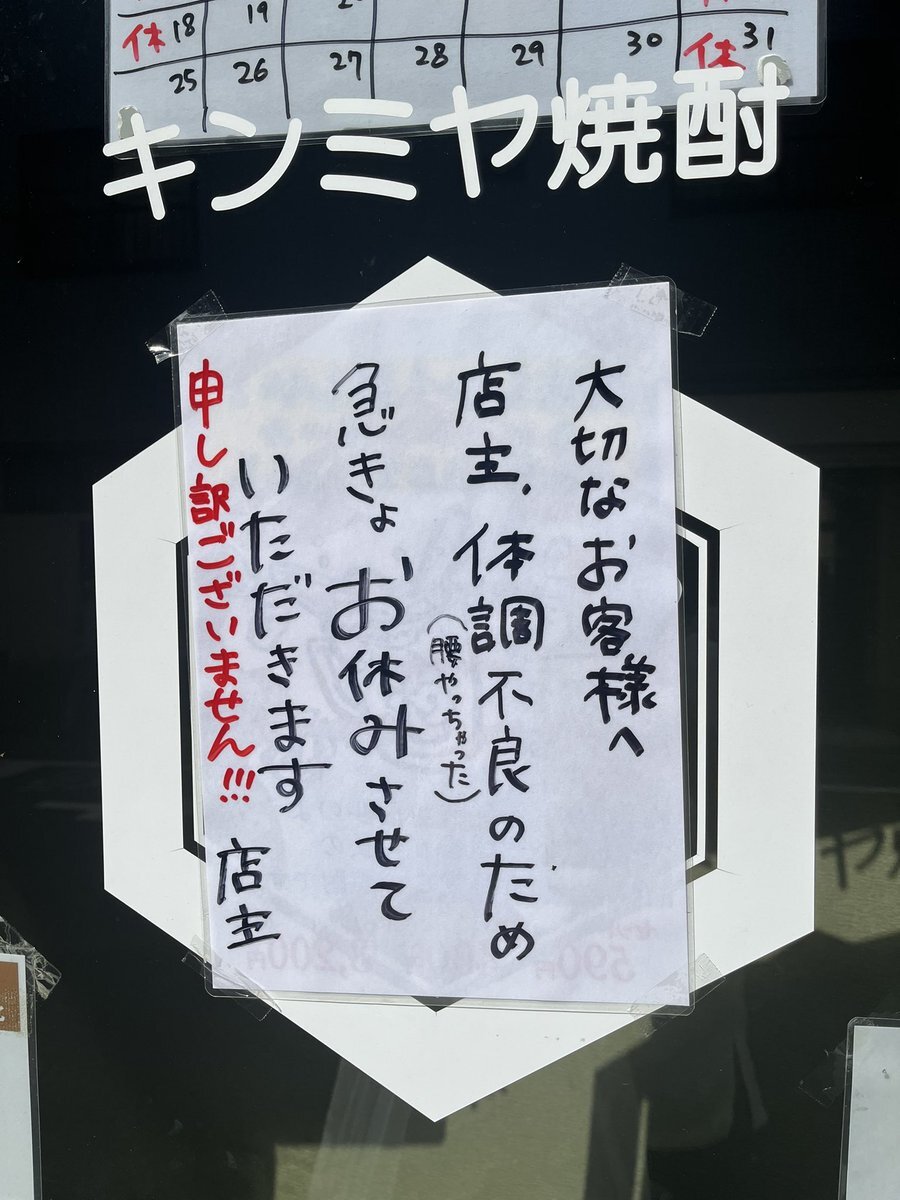 休 18 19
25 26 27 28 29 30 休 31
キンミヤ焼酎
大切なお客様へ
店主、体調不良のため
(腰やっちゃった)
急きょお休みさせて
いただきます
店主
申し訳ございません!!!